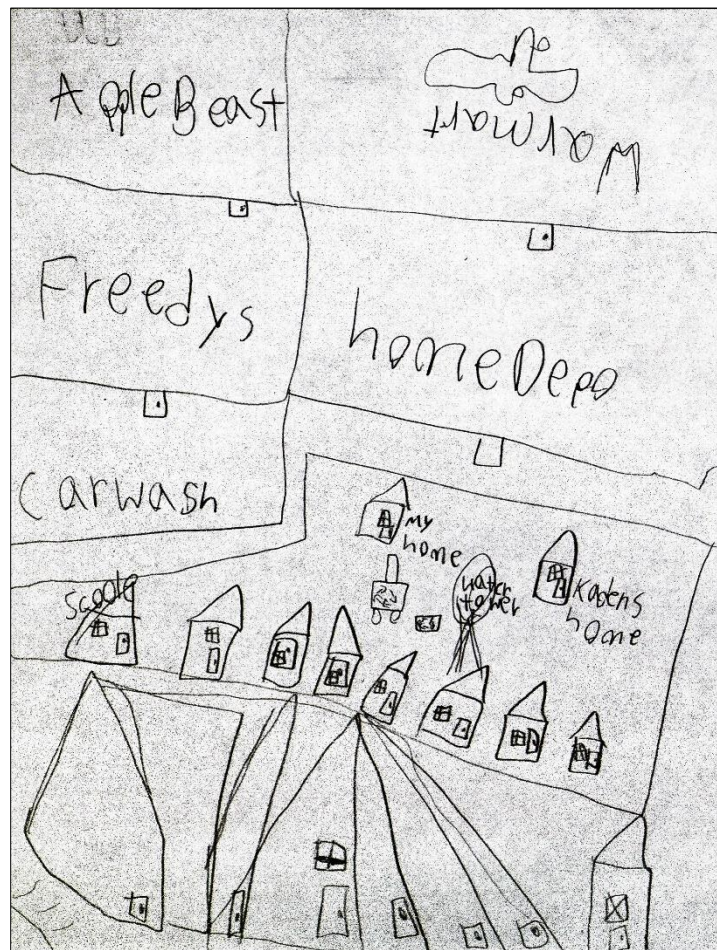 AppleBeast
Warmart
Freedys
homeDepo
carwash
my
home
water
tower
Kadens
home
scoole